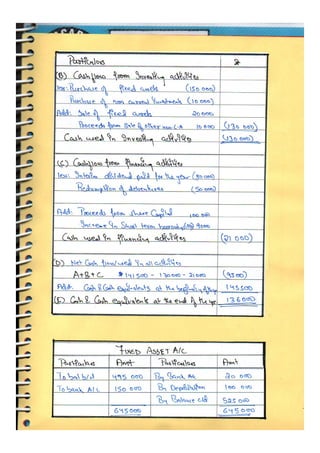 Particulars ₹
(B) Cash flow from Investing activities
less: Purchase of fixed assets (150 000)
Purchase of non current Investment (10 000)
Add: Sale of fixed assets 20 000
Proceeds from Sale of other non C.A 10 000 (130 000)
Cash used in Investing activities (130 000)
(C) Cash flow from financing activities
less: Interim dividend paid for the year (80 000)
Redemption of debentures (50 000)
Add: Proceeds from share Capital 100 000
Increase in Short term
Cash used in financing activities (21 000)
(D) Net Cash flow/used in all activities
A+B+C 141500 - 130000 - 21000 (9500)
Add: Cash & Cash equivalents at the beginning of 145500
(E) Cash & Cash equivalents at the end of the year 136000
FIXED ASSET A/C
Particulars Amt Particulars Amt
To bal b/d 495 000 By Bank A/c 20 000
To bank A/c 150 000 By Depreciation 100 000
By Balance c/d 525 000
645000 645 000